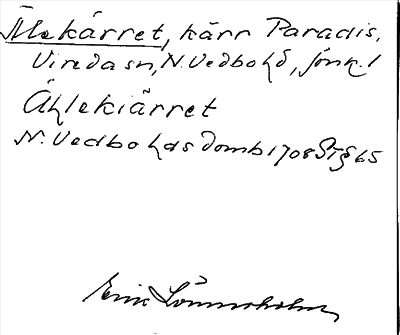 Älekärret, kärr Paradis,
Vireda sn, N. Vedbo hd, Jönk. l
Ählekiärret
N. Vedbo hds domb 1708 St § 65
Erik Lönnerholm